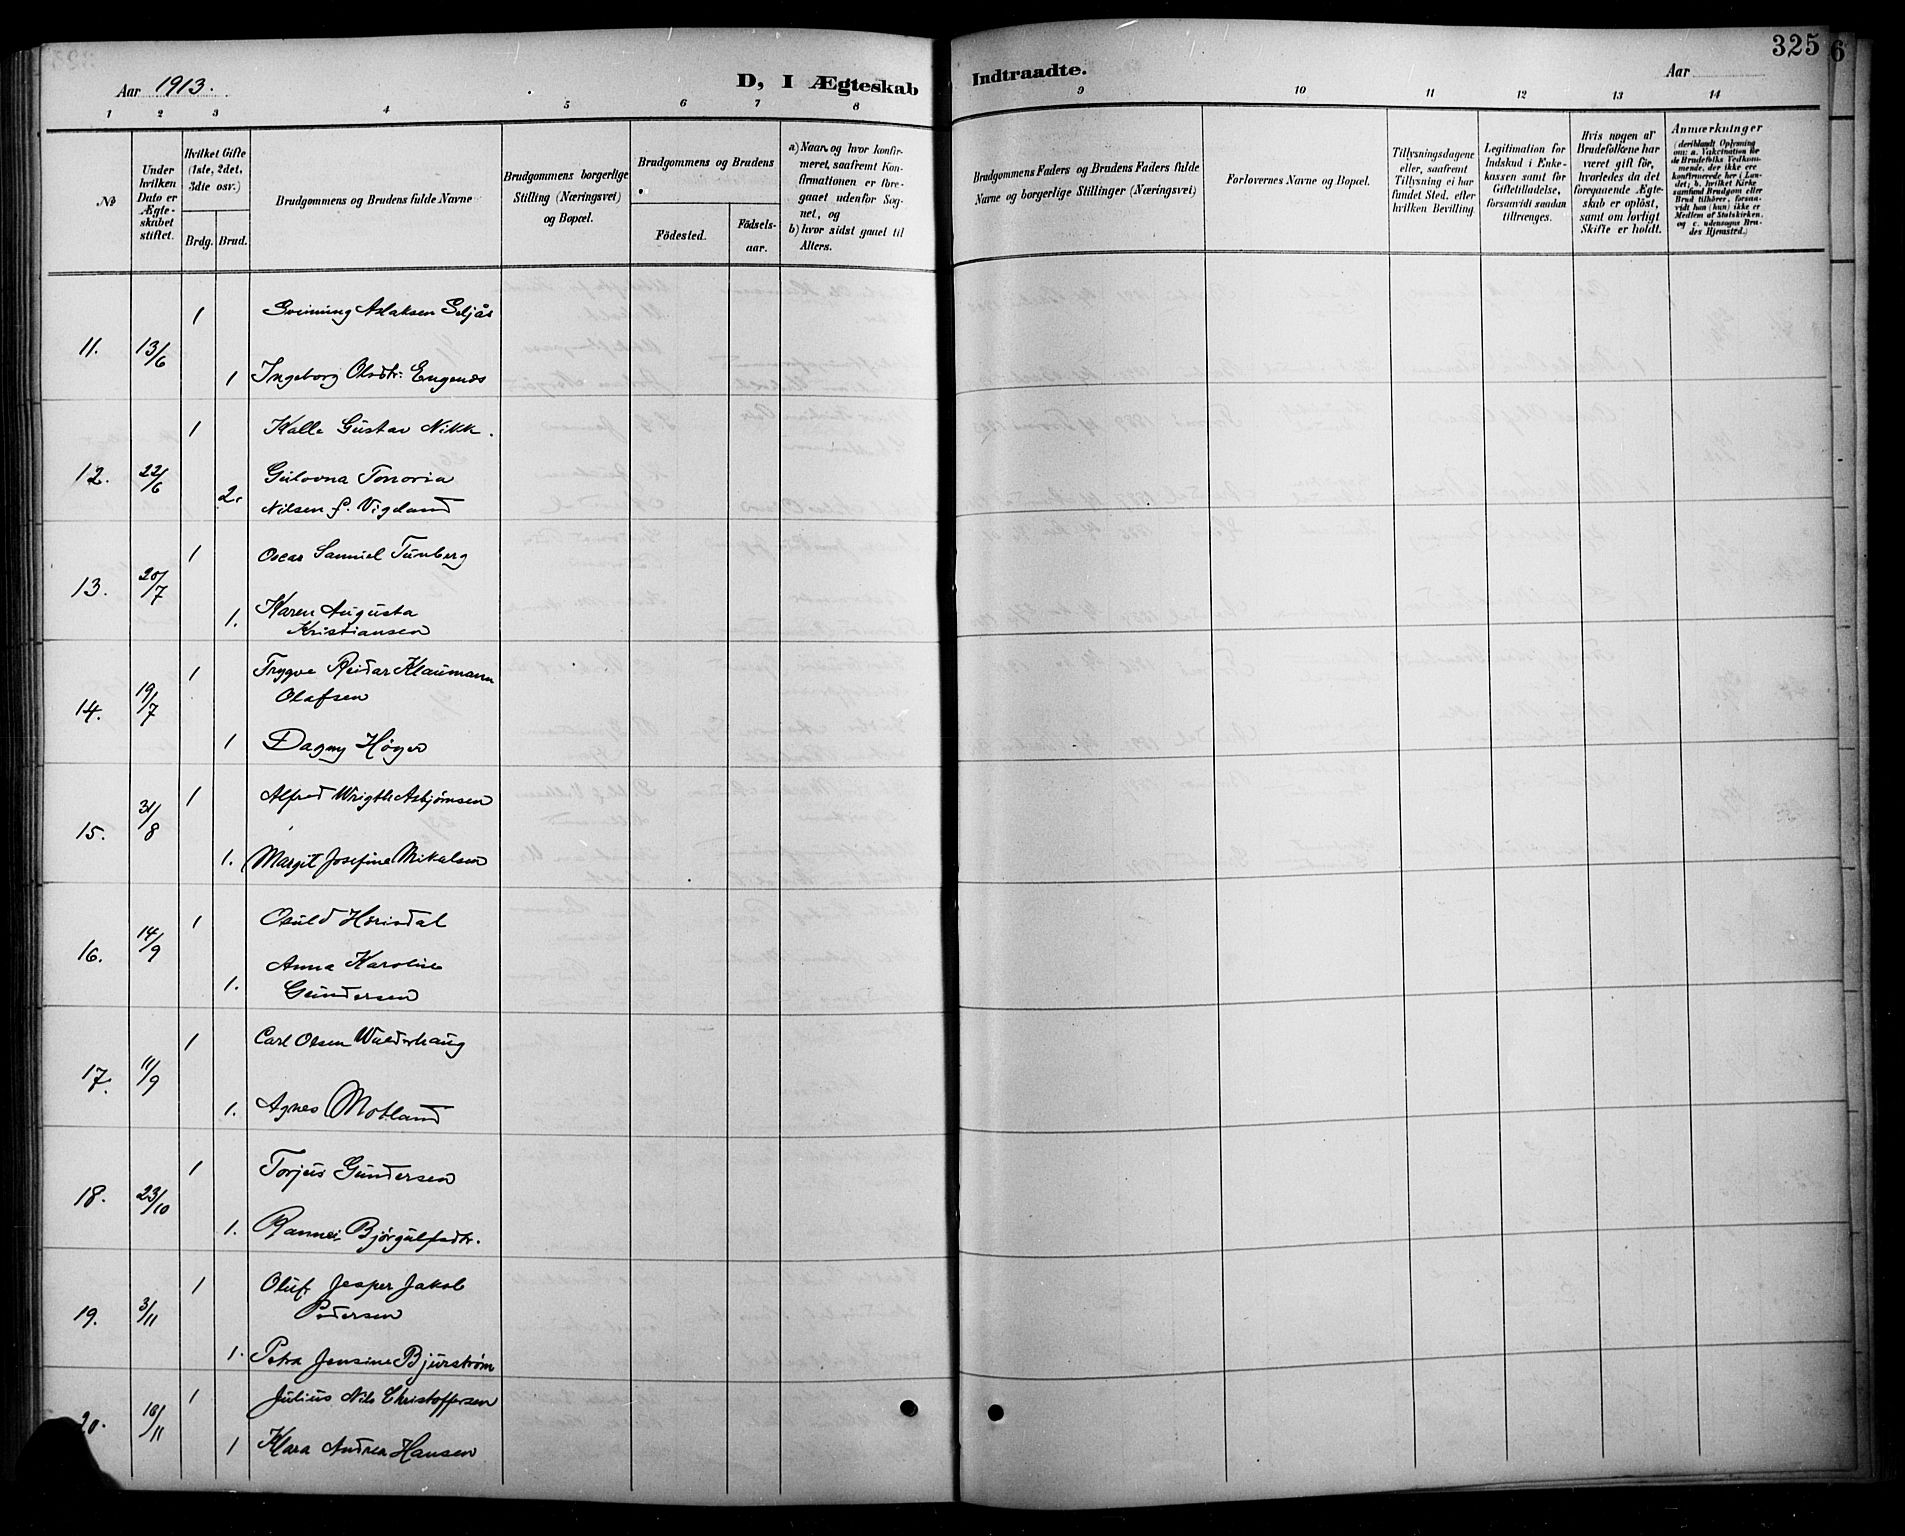 325
6
Aar 1913.
D, I Ægteskab
Indtraadte.
Aar
1 2 3 4 5 6 7 8
9 10 11 12 13 14
No
Under hvilken Dato er Ægte-skabet stiftet.
Hvilket Gifte (1ste, 2det, 3die osv.)
Brdg. Brud.
Brudgommens og Brudens fulde Navne
Brudgommens borgerlige Stilling (Næringsvei) og Bopæl.
Brudgommens og Brudens
Födested.
Födsels-aar.
a) Naar og hvor konfir-meret, saafremt Kon-firmationen er fore-gaaet udenfor Sog-net, og
b) hvor sidst gaaet til Alters.
Brudgommens Faders og Brudens Faders fulde Navne og borgerlige Stillinger (Næringsvei)
Forlovernes Navne og Bopæl.
Tillysningsdagene eller, saafremt Tillysning ei har fundet Sted, efter hvilken Bevilling.
Legitimation for Indskud i Enke-kassen samt for Giftetilladelse, forsaavidt saadan tiltrænges.
Hvis nogen af Brudefolkene har været gift før, hvorledes da det foregaaende Ægte-skab er oplöst, samt om lovligt Skifte er holdt.
Anmærkninger (deriblandt Oplysning om: a. Vakcination for de Brudefolks Vedkom-mende, der ikke er konfirmerede her i Lan-det; b. hvilket Kirke samfund Brudgom eller Brud tilhörer, forsaa-vidt han (hun) ikke er Medlem af Statskirken, og c. udensogns Bru-des Hjemsted.)
11. 13/6 1 Svinung Aslaksen Seljås
1 Ingeborg Olsdtr: Engenes
12. 22/6 1 Kalle Gustav Nikk.
2. Gulovna Tonoria
Nilsen f. Vigeland
13. 20/7 1 Oscar Samuel Tunberg
1. Karen Augusta
Kristiansen
14. 19/7 1 Trygve Reidar Klaumann
Olafsen
1 Dagny Höyer
15. 31/8 1 Alfred Wrigth Asbjørnsen
1. Margit Josefine Mikalsen
16. 14/9 1 Osuld Hørisdal
1. Anna Karoline
Gundersen
17. 11/9 1 Carl Olsen Walderhaug
1. Agnes Motland
18. 23/10 1 Torjus Gundersen
1. Rannei Bjørgulfsdtr.
19. 3/11 1 Oluf Jesper Jakob
Pedersen
1. Petra Jensine Bjurstrøm
20. 16/11 1 Julius Nils Christoffersen
1 Klara Andrea Hansen